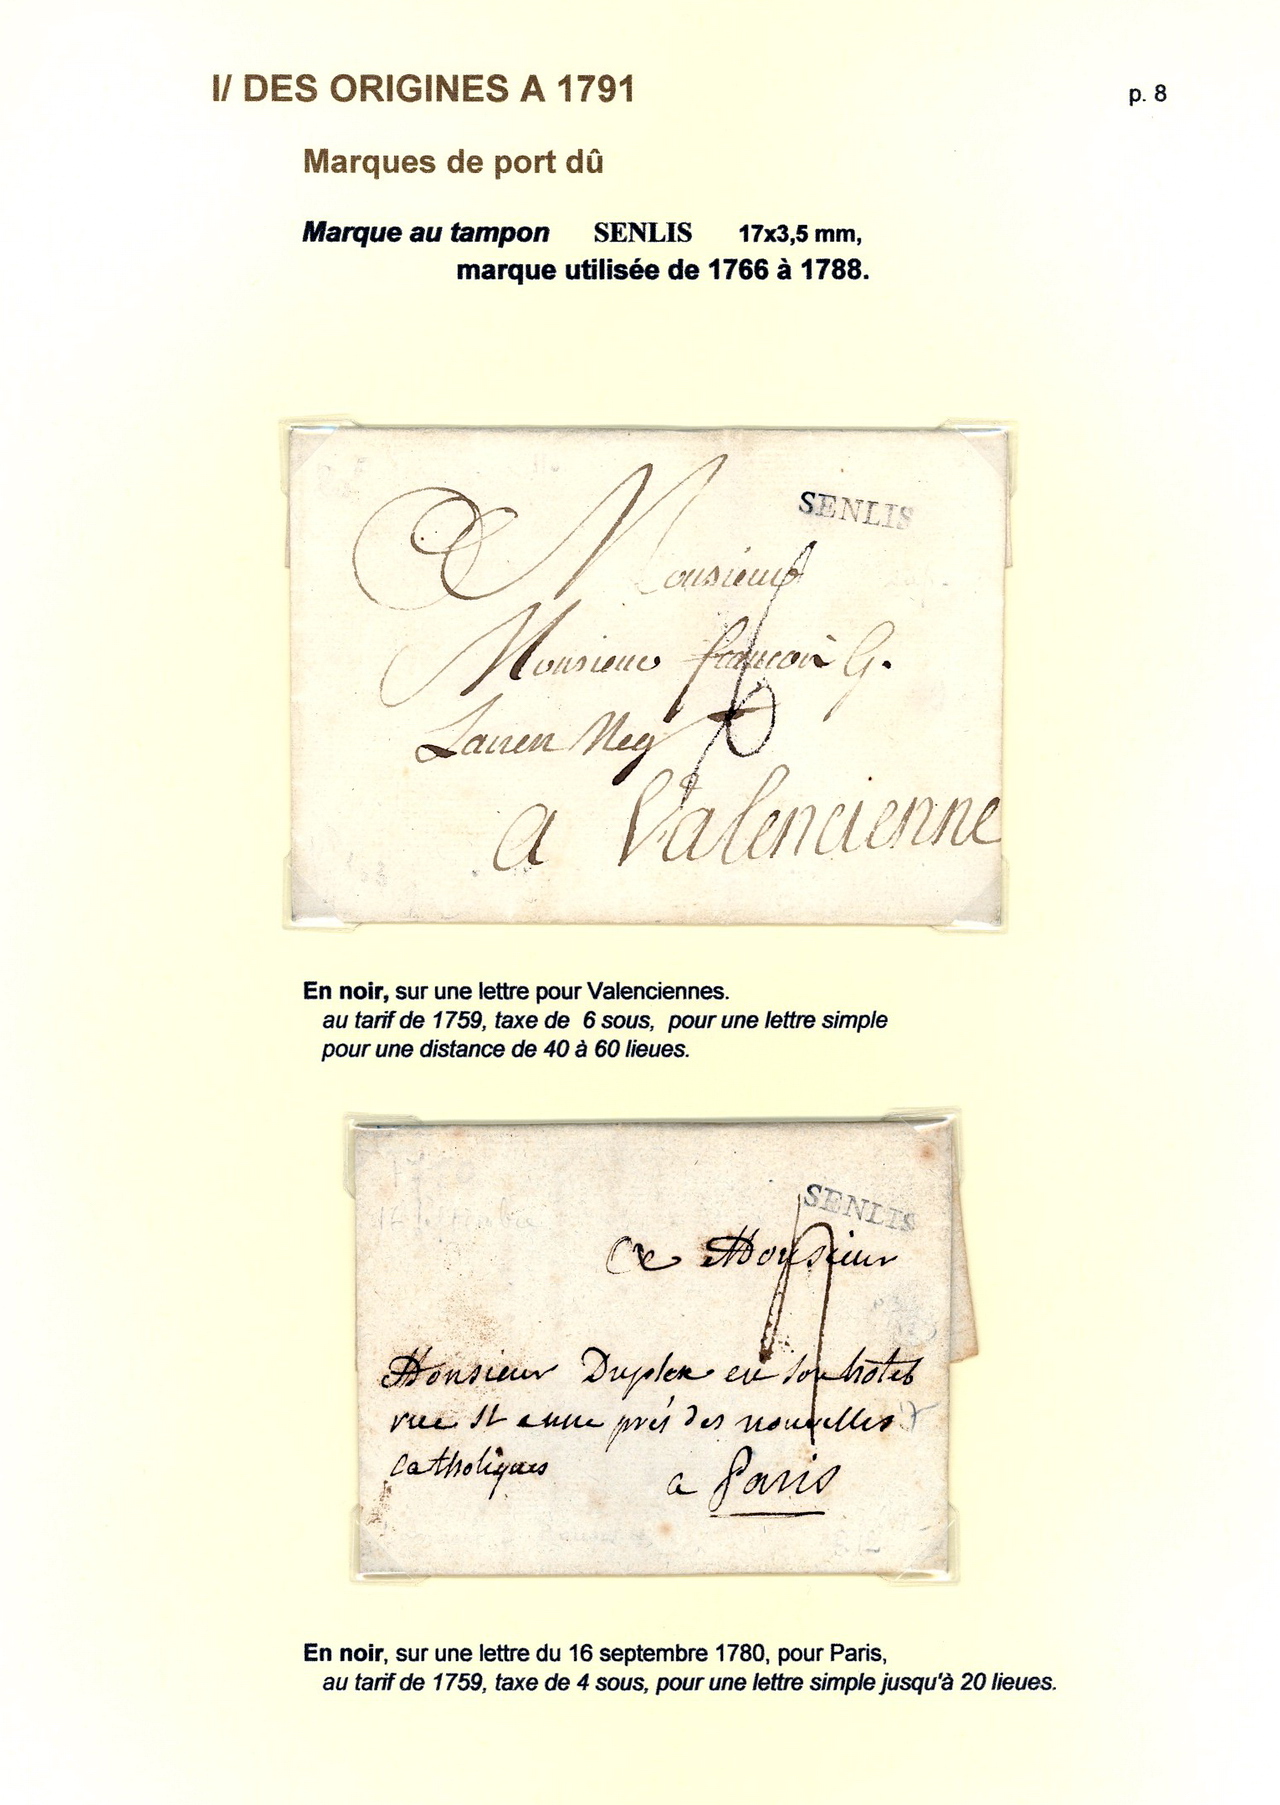 I/ DES ORIGINES A 1791
p. 8
Marques de port dû
Marque au tampon SENLIS 17x3,5 mm,
marque utilisée de 1766 à 1788.
SENLIS
A Monsieur
Monsieur francois G.
Neg
6
a Valencienne
En noir, sur une lettre pour Valenciennes.
au tarif de 1759, taxe de 6 sous, pour une lettre simple
pour une distance de 40 à 60 lieues.
SENLIS
A Monsieur
4
Monsieur Dupleix en son hotel
rue St anne prés des nouvelles
Catholiques
a Paris
En noir, sur une lettre du 16 septembre 1780, pour Paris,
au tarif de 1759, taxe de 4 sous, pour une lettre simple jusqu'à 20 lieues.